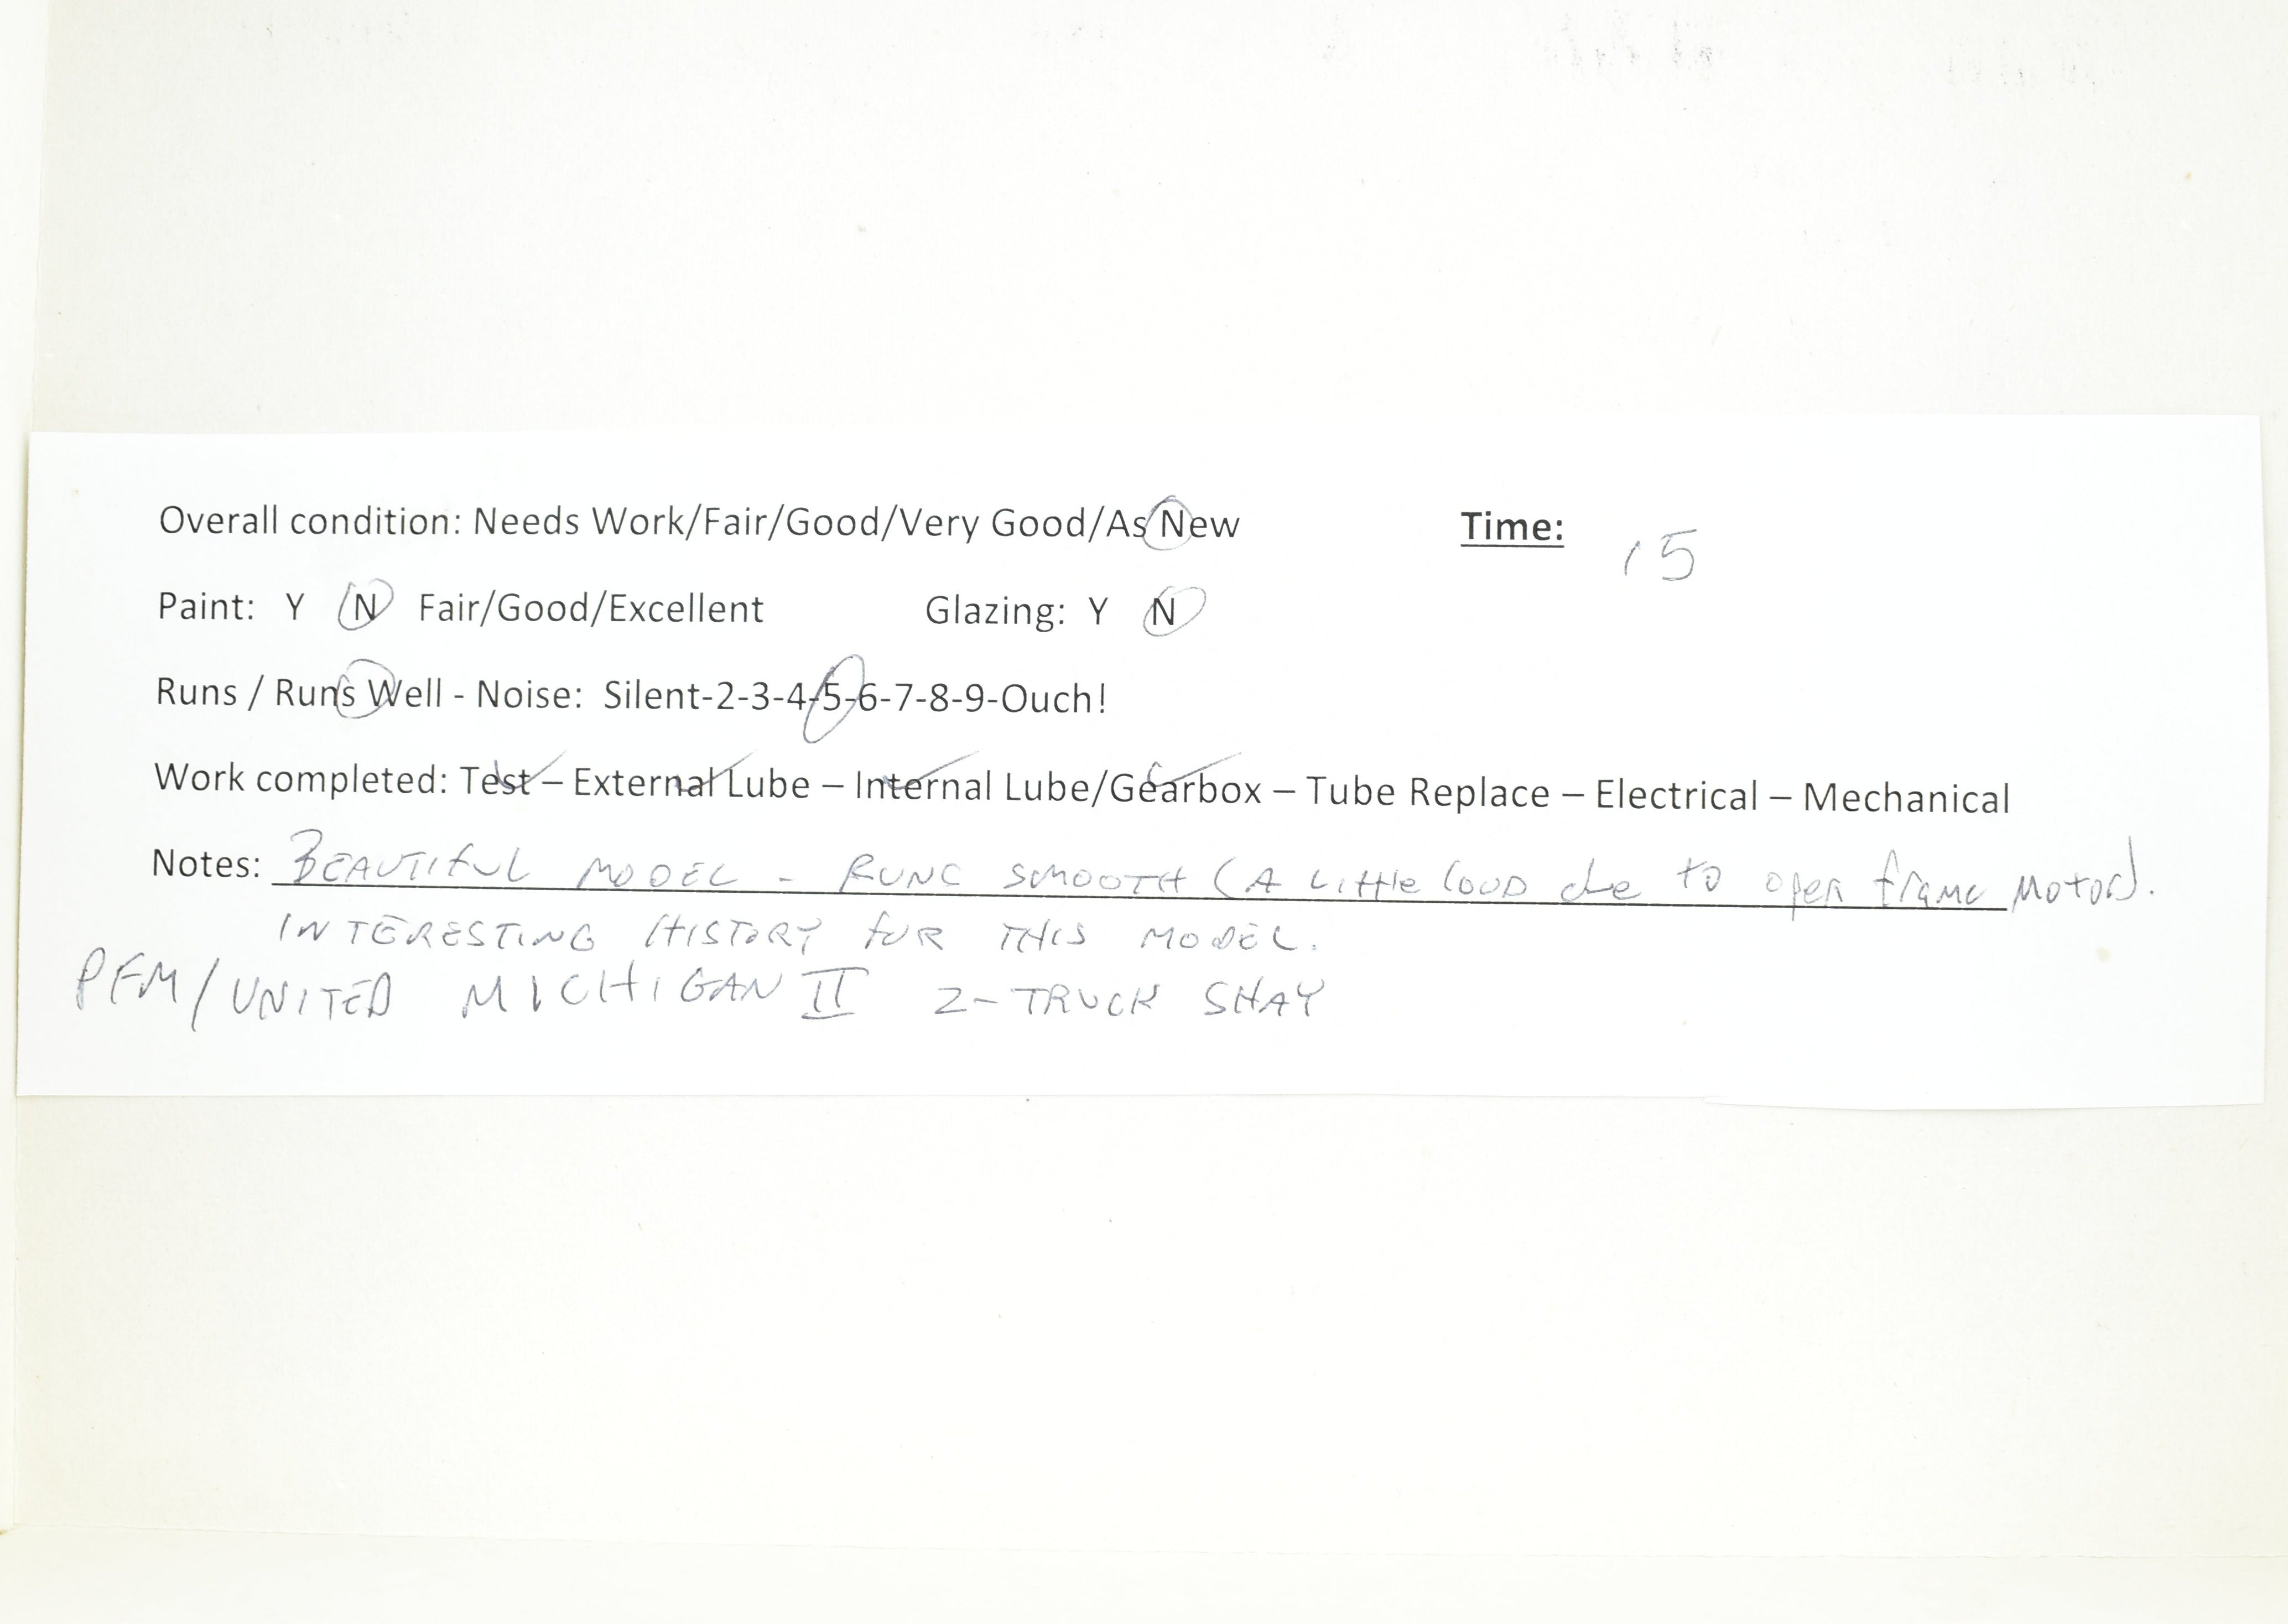 Overall condition: Needs Work/Fair/Good/Very Good/As New Time: 15
Paint: Y N Fair/Good/Excellent Glazing: Y N
Runs / Runs Well - Noise: Silent-2-3-4-5-6-7-8-9-Ouch!
Work completed: Test – External Lube – Internal Lube/Gearbox – Tube Replace – Electrical – Mechanical
Notes: BEAUTIFUL MODEL - RUNS SMOOTH (A Little LOUD due to open frame Motor).
INTERESTING HISTORY FOR THIS MODEL.
PFM/UNITED MICHIGAN II 2-TRUCK SHAY